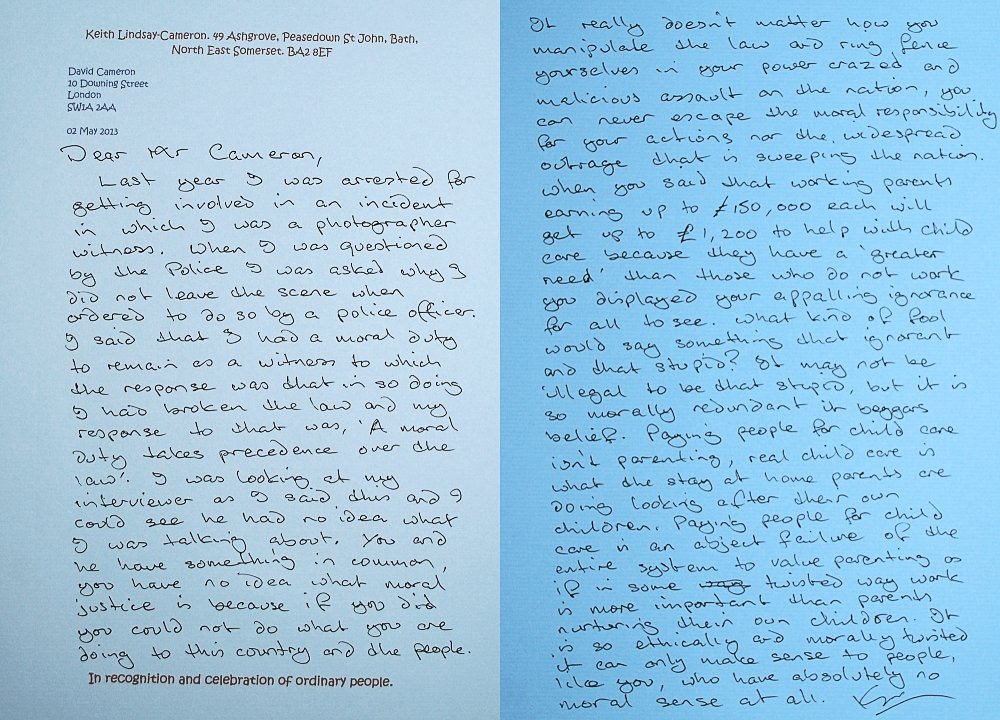 Keith Lindsay-Cameron. 49 Ashgrove, Peasedown St John, Bath,
North East Somerset. BA2 8EF
David Cameron
10 Downing Street
London
SW1A 2AA
02 May 2013
Dear Mr Cameron,
Last year I was arrested for
getting involved in an incident
in which I was a photographer
witness. When I was questioned
by the Police I was asked why I
did not leave the scene when
ordered to do so by a police officer.
I said that I had a moral duty
to remain as a witness to which
the response was that in so doing
I had broken the law and my
response to that was, 'A moral
duty takes precedence over the
law'. I was looking at my
interviewer as I said this and I
could see he had no idea what
I was talking about. You and
he have something in common,
you have no idea what moral
justice is because if you did
you could not do what you are
doing to this country and the people.
In recognition and celebration of ordinary people.
It really doesn't matter how you
manipulate the law and ring fence
yourselves in your power crazed and
malicious assault on the nation, you
can never escape the moral responsibility
for your actions nor the widespread
outrage that is sweeping the nation.
When you said that working parents
earning up to £150,000 each will
get up to £1,200 to help with child
care because they have a 'greater
need' than those who do not work
you displayed your appalling ignorance
for all to see. What kind of fool
would say something that ignorant
and that stupid? It may not be
illegal to be that stupid, but it is
so morally redundant it beggars
belief. Paying people for child care
isn't parenting, real child care is
what the stay at home parents are
doing looking after their own
children. Paying people for child
care is an abject failure of the
entire system to value parenting as
if in some twisted way work
is more important than parents
nurturing their own children. It
is so ethically and morally twisted
it can only make sense to people,
like you, who have absolutely no
moral sense at all.